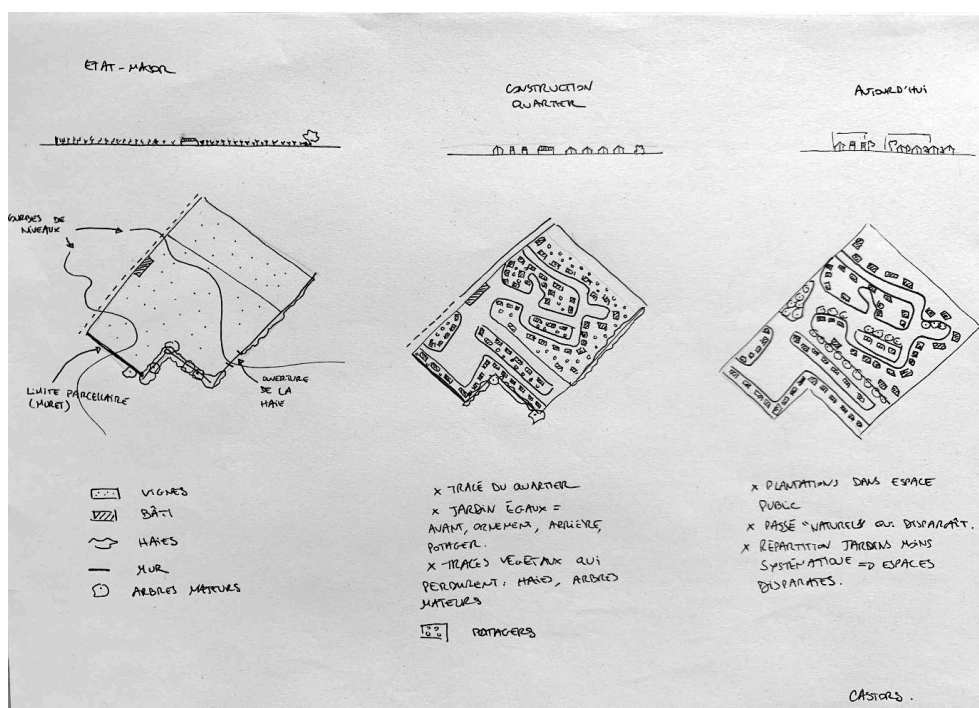 ÉTAT-MAJOR
COURBES DE
NIVEAUX
LIMITE PARCELLAIRE
(MURET)
OUVERTURE
DE LA
HAIE
VIGNES
BÂTI
HAIES
MUR
ARBRES MATEURS
CONSTRUCTION
QUARTIER
x TRACÉ DU QUARTIER
x JARDIN ÉGAUX =
AVANT, ORNEMENT, ARRIÈRE,
POTAGER.
x TRACES VÉGÉTAUX QUI
PERDURENT : HAIES, ARBRES
MATEURS
POTAGERS
AUJOURD'HUI
x PLANTATIONS DANS ESPACE
PUBLIC
x PASSÉ "NATUREL" QUI DISPARAÎT.
x RÉPARTITION JARDINS MOINS
SYSTÉMATIQUE => ESPACES
DISPARATES.
CASTORS.